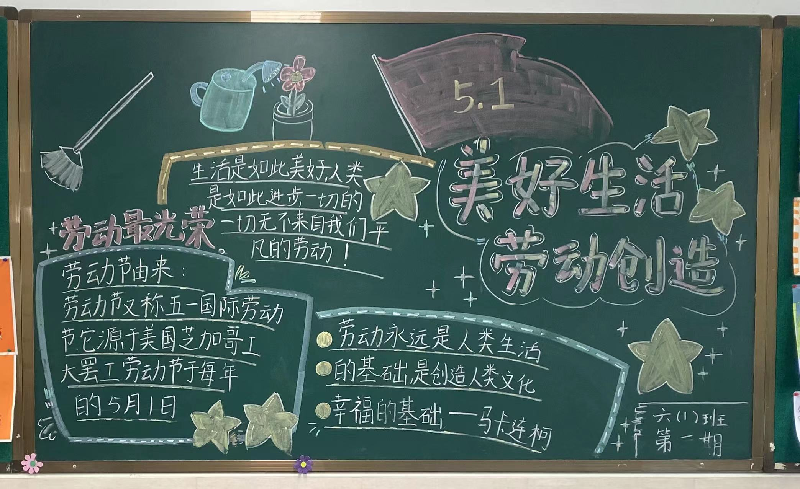 5.1
美好生活
劳动创造
生活是如此美好,人类
是如此进步一切的
一切无不来自我们平
凡的劳动！
劳动最光荣
劳动节由来：
劳动节又称五一国际劳动
节它源于美国芝加哥工
大罢工劳动节于每年
的5月1日
劳动永远是人类生活
的基础,是创造人类文化
幸福的基础——马卡连柯
六(1)班
第一期